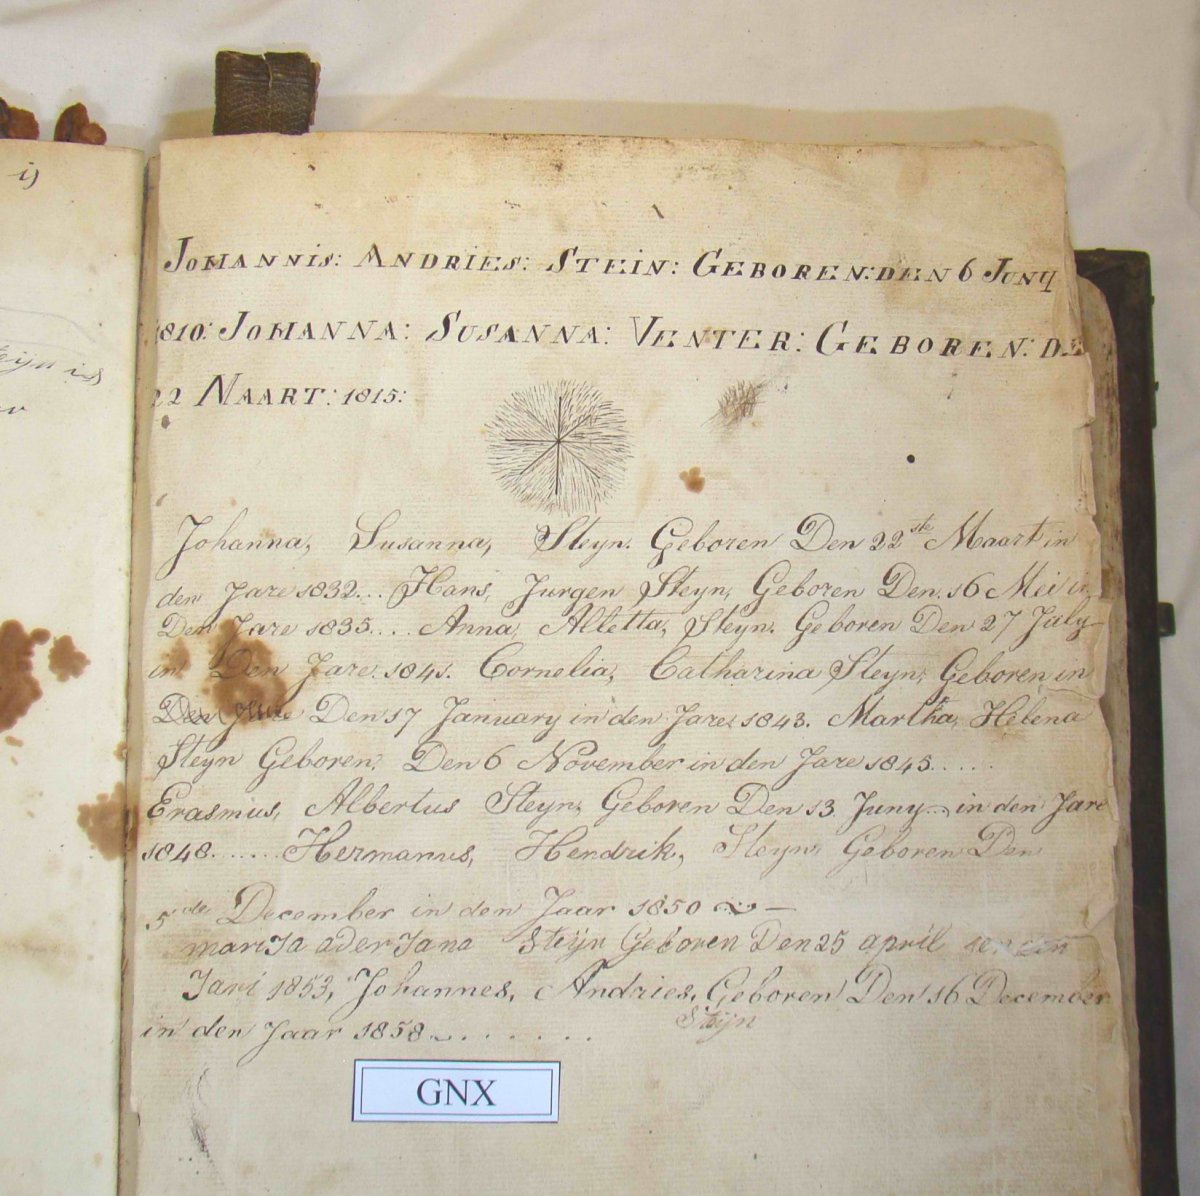 Johannis: Andries: Stein: Geboren: den 6 Juny
1810: Johanna: Susanna: Venter: Geboren: de
22 Maart: 1815:
Johanna, Susanna, Steyn. Geboren Den 22ste Maart in
den Jare 1832... Hans, Jurgen Steyn, Geboren Den 16 Mei in
Den Jare 1835.... Anna, Alletta, Steyn. Geboren Den 27 July
in Den Jare. 1841. Cornelia, Catharina Steyn, Geboren in
Den Den 17 January in den Jare 1843. Martha, Helena
Steyn Geboren, Den 6 November in den Jare 1845......
Erasmus, Albertus Steyn, Geboren Den 13 Juny in den Jare
1848....... Hermanus, Hendrik, Steyn, Geboren Den
5de December in den Jaar 1850
mariJa aderJana Steijn Geboren Den 25 april
Jari 1853, Johannes, Andries, Geboren Den 16 December
Steijn
in den Jaar 1858.......
GNX